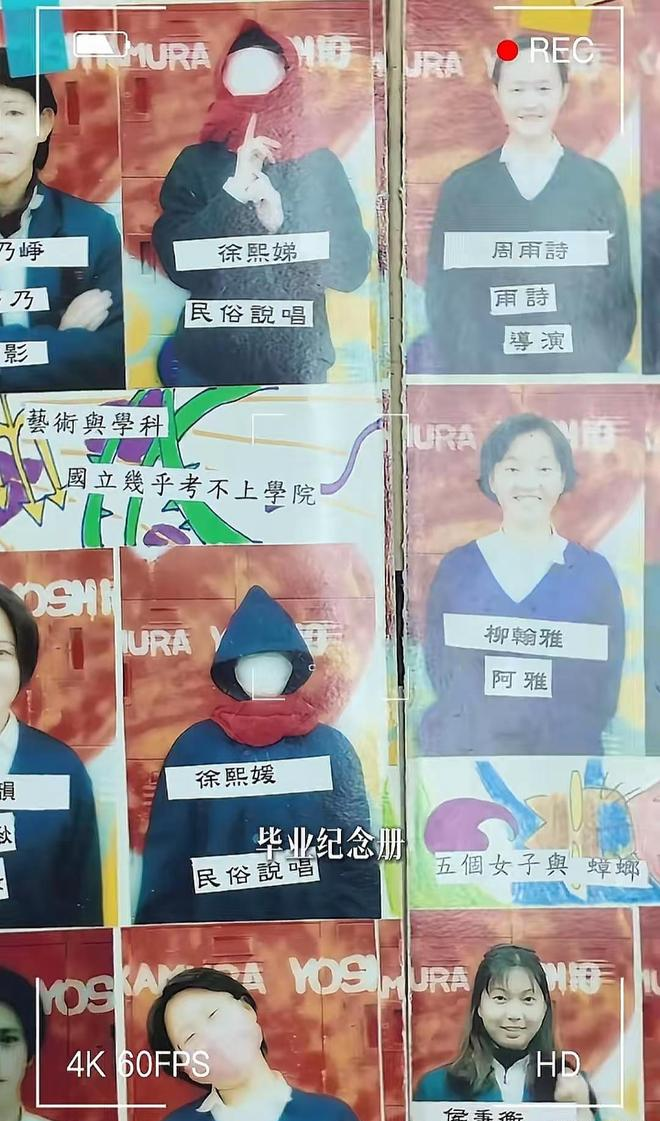 REC
MURA
徐熙娣
民俗說唱
周雨詩
雨詩
導演
乃崢
乃
影
藝術與學科
國立幾乎考不上學院
YOSHI
MURA
徐熙媛
民俗說唱
柳翰雅
阿雅
韻
毕业纪念册
五個女子與 蟑螂
YOS
KAMURA YOSHI
MURA
侯秉衡
4K 60FPS
HD